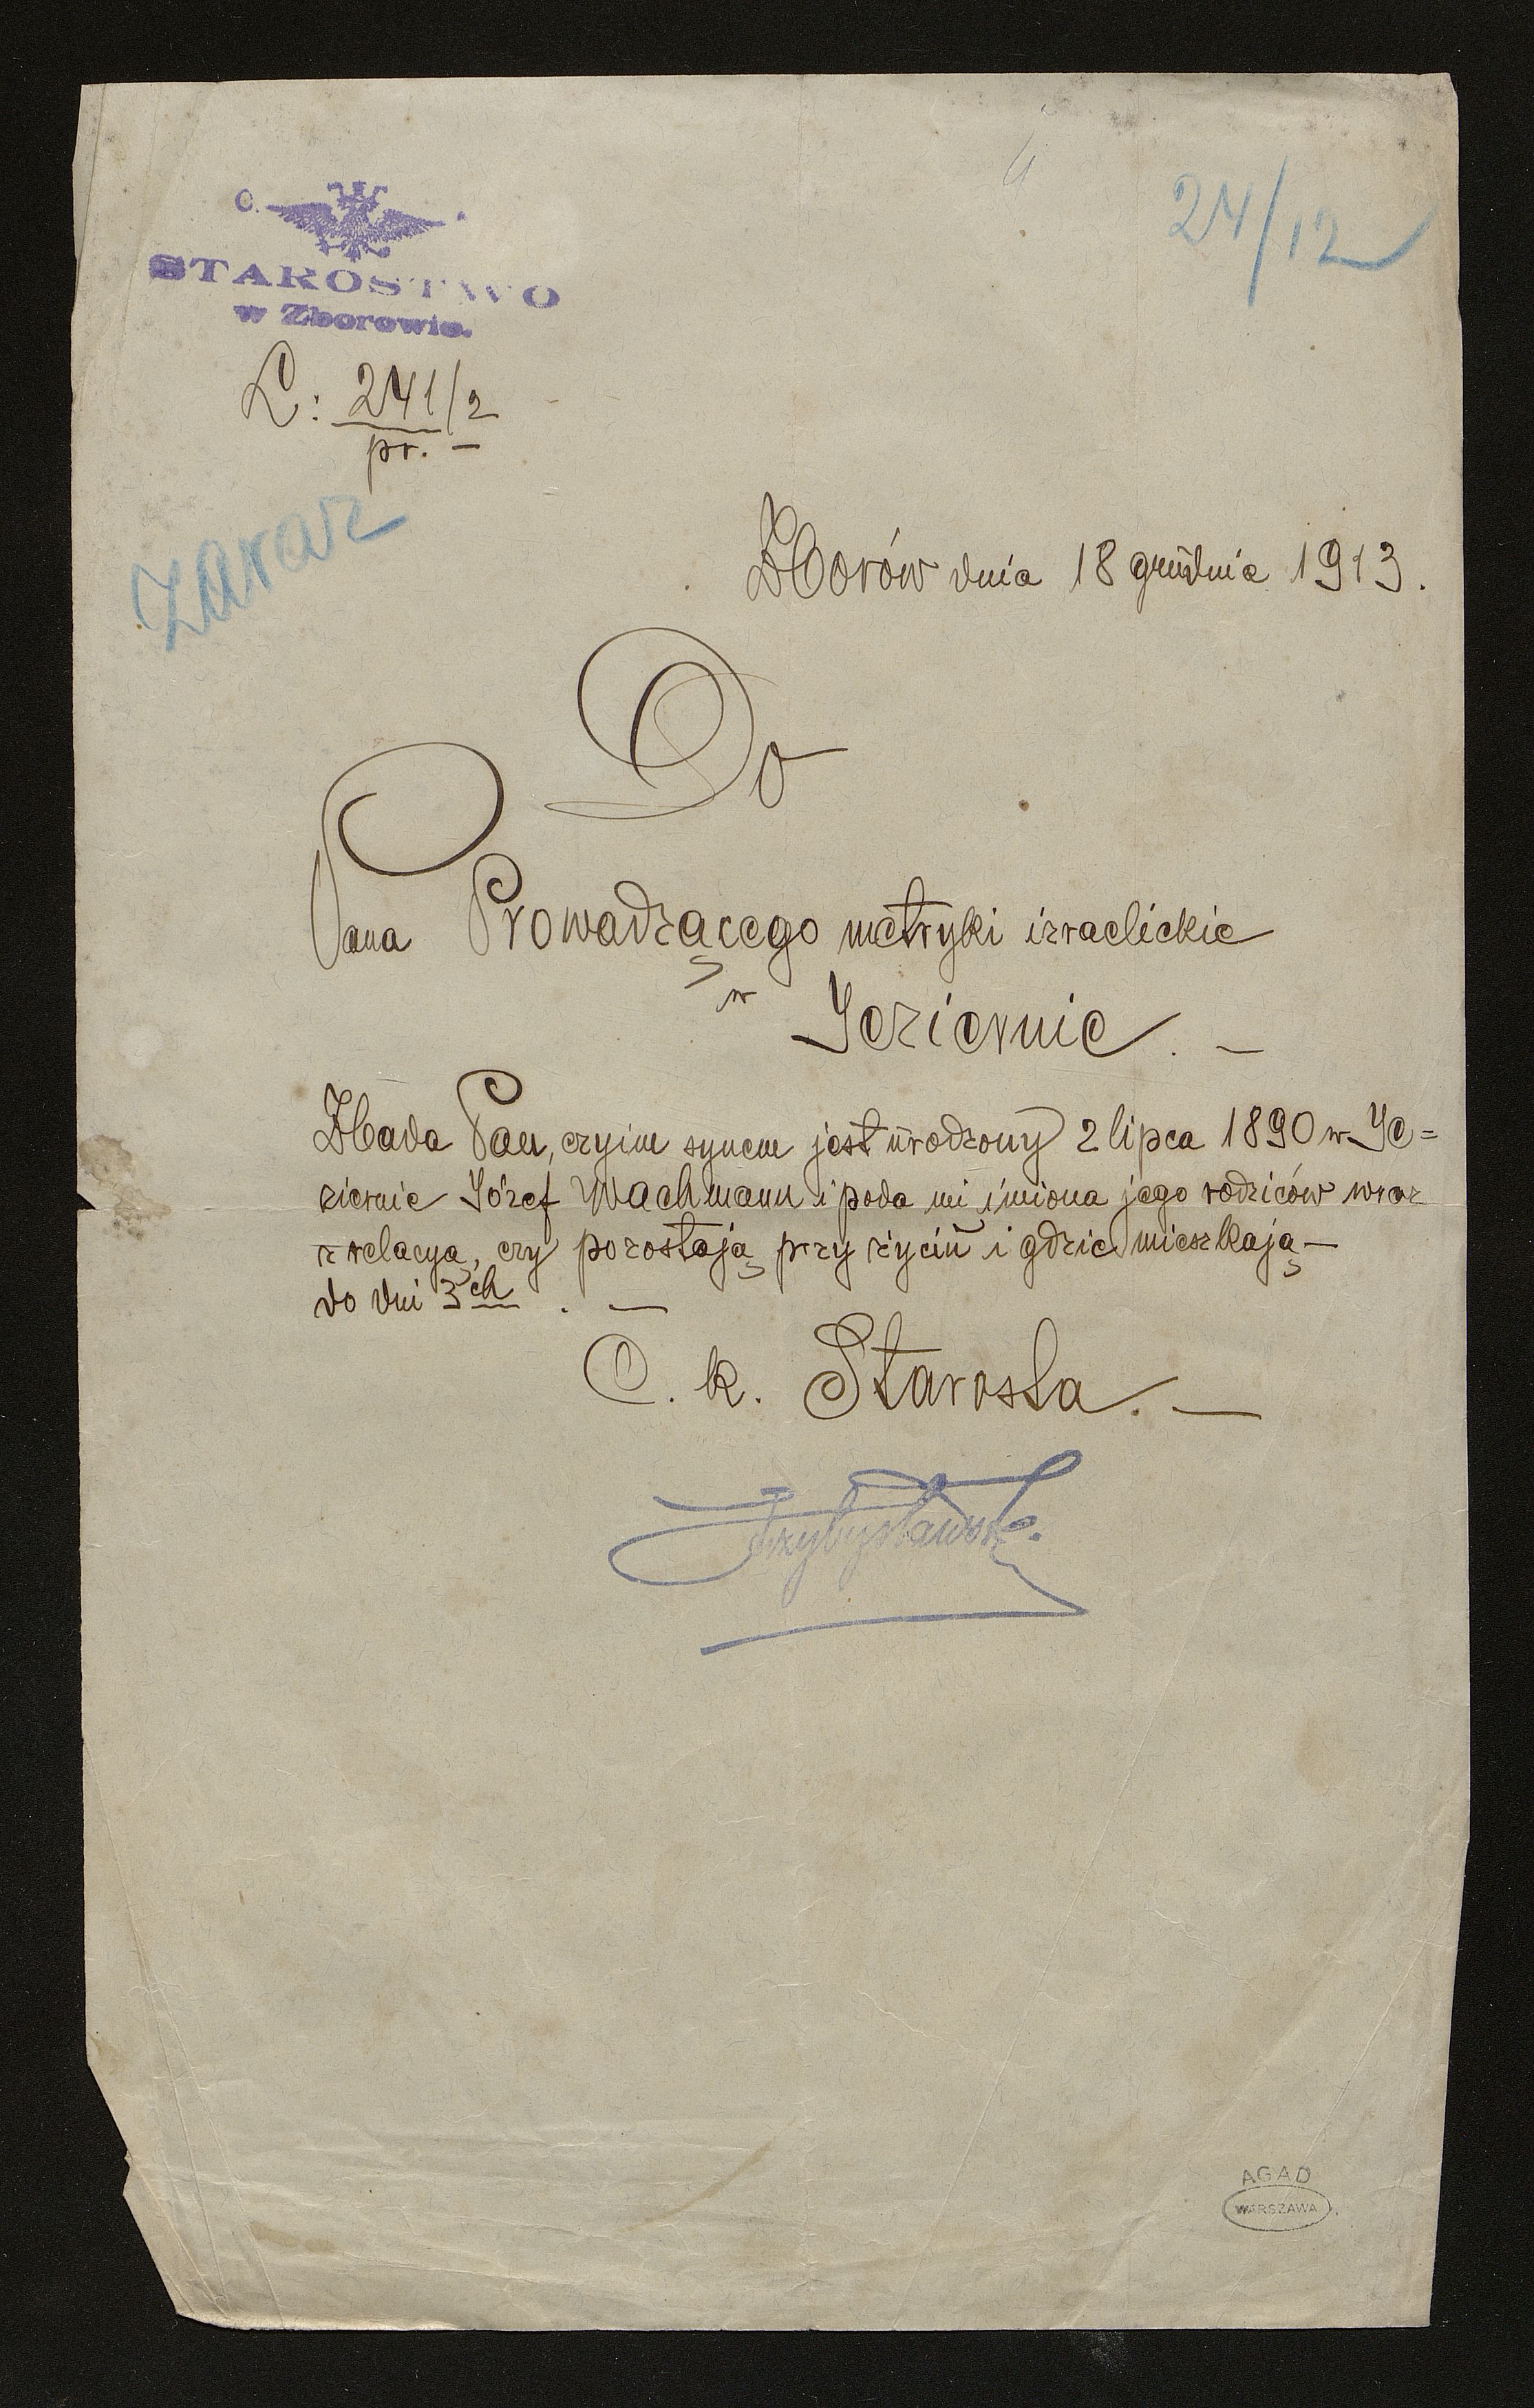 C.
STAROSTWO
w Zborowie.
24/12
L: 241/2
pr. —
Zaraz
Zborów dnia 18 grudnia 1913.
Do
Pana Prowadzącego metryki izraelickie
w Jeziernie. —
Zbada Pan, czyim synem jest urodzony 2 lipca 1890 w Je=
ziernie Józef Wachmann i poda mi imiona jego rodziców wraz
z relacyą, czy pozostają przy życiu i gdzie mieszkają —
do dni 3ch. —
C. k. Starosta. —
AGAD
WARSZAWA